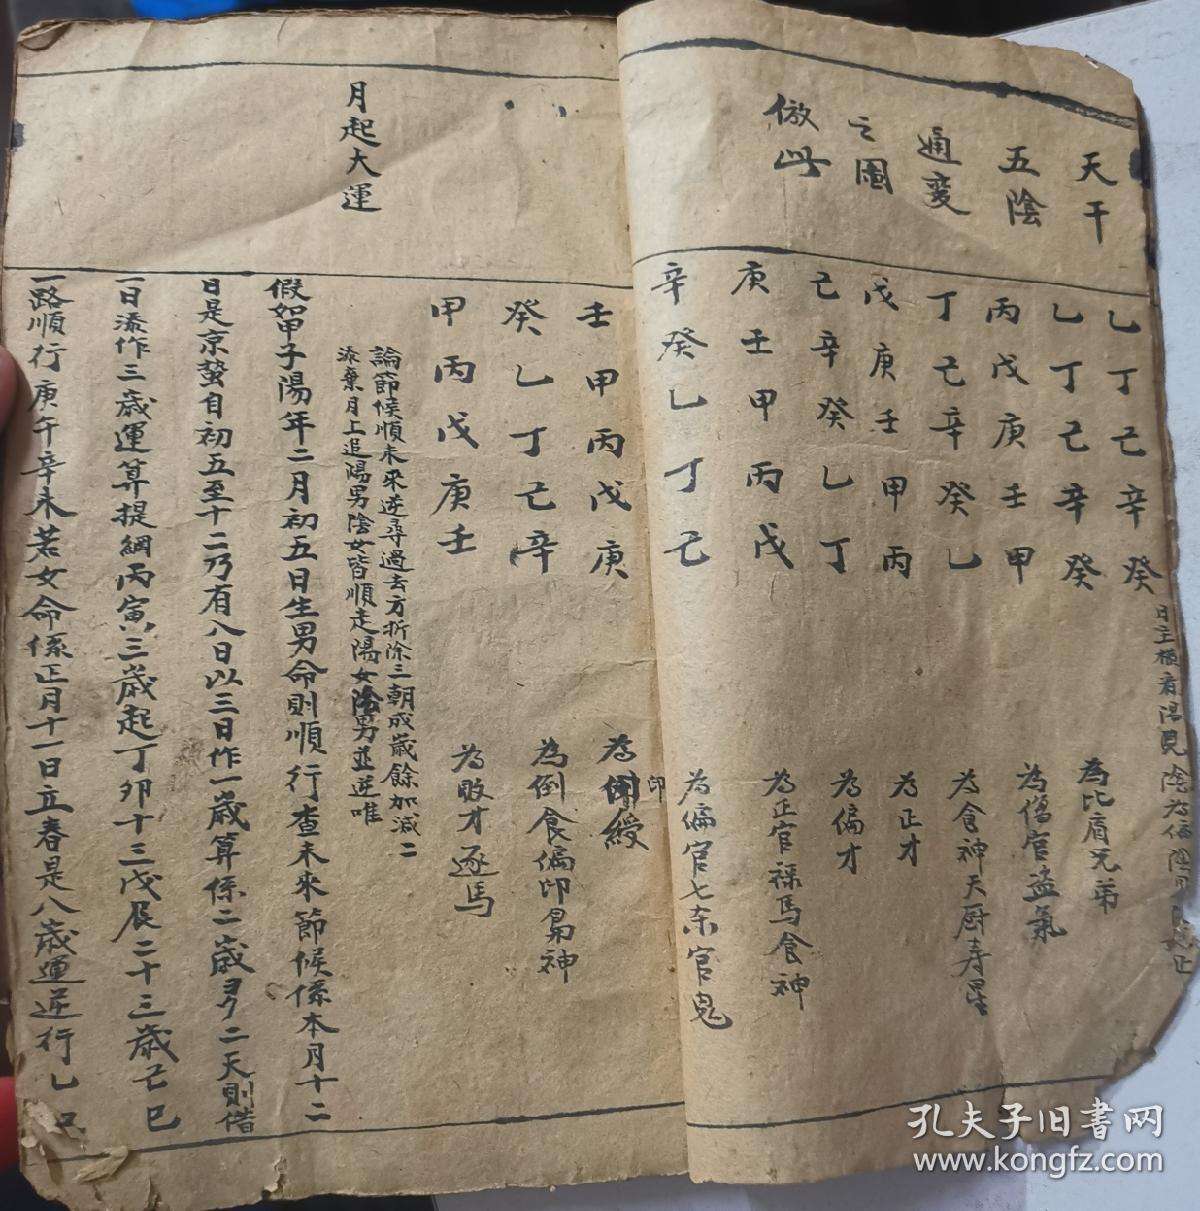 天干
五陰
通变
之圖
倣此
乙丁己辛癸
日主横看陽見陰為偏陰
乙丁己辛癸 為比肩兄弟
丙戊庚壬甲 為傷官盗氣
丁己辛癸乙 為食神天厨寿星
戊庚壬甲丙 為正才
己辛癸乙丁 為偏才
庚壬甲丙戊 為正官祿馬食神
辛癸乙丁己 為偏官七杀官鬼
壬甲丙戊庚 為印綬
癸乙丁己辛 為倒食偏印梟神
甲丙戊庚壬 為敗才逐馬
月起大運
論節候順未來逆尋過去方折除三朝成歲餘加減二
添棄月上追陽男陰女皆順走陽女陰男並逆唯
假如甲子陽年二月初五日生男命則順行查未來節候係本月十二
日是京蟄自初五至十二乃有八日以三日作一歲算係二歲另二天則借
一日添作三歲運算提綱丙寅三歲起丁卯十三戊辰二十三歲己巳
一路順行庚午辛未若女命係正月十一日立春是八歲運逆行乙丑
孔夫子旧书网
www.kongfz.com